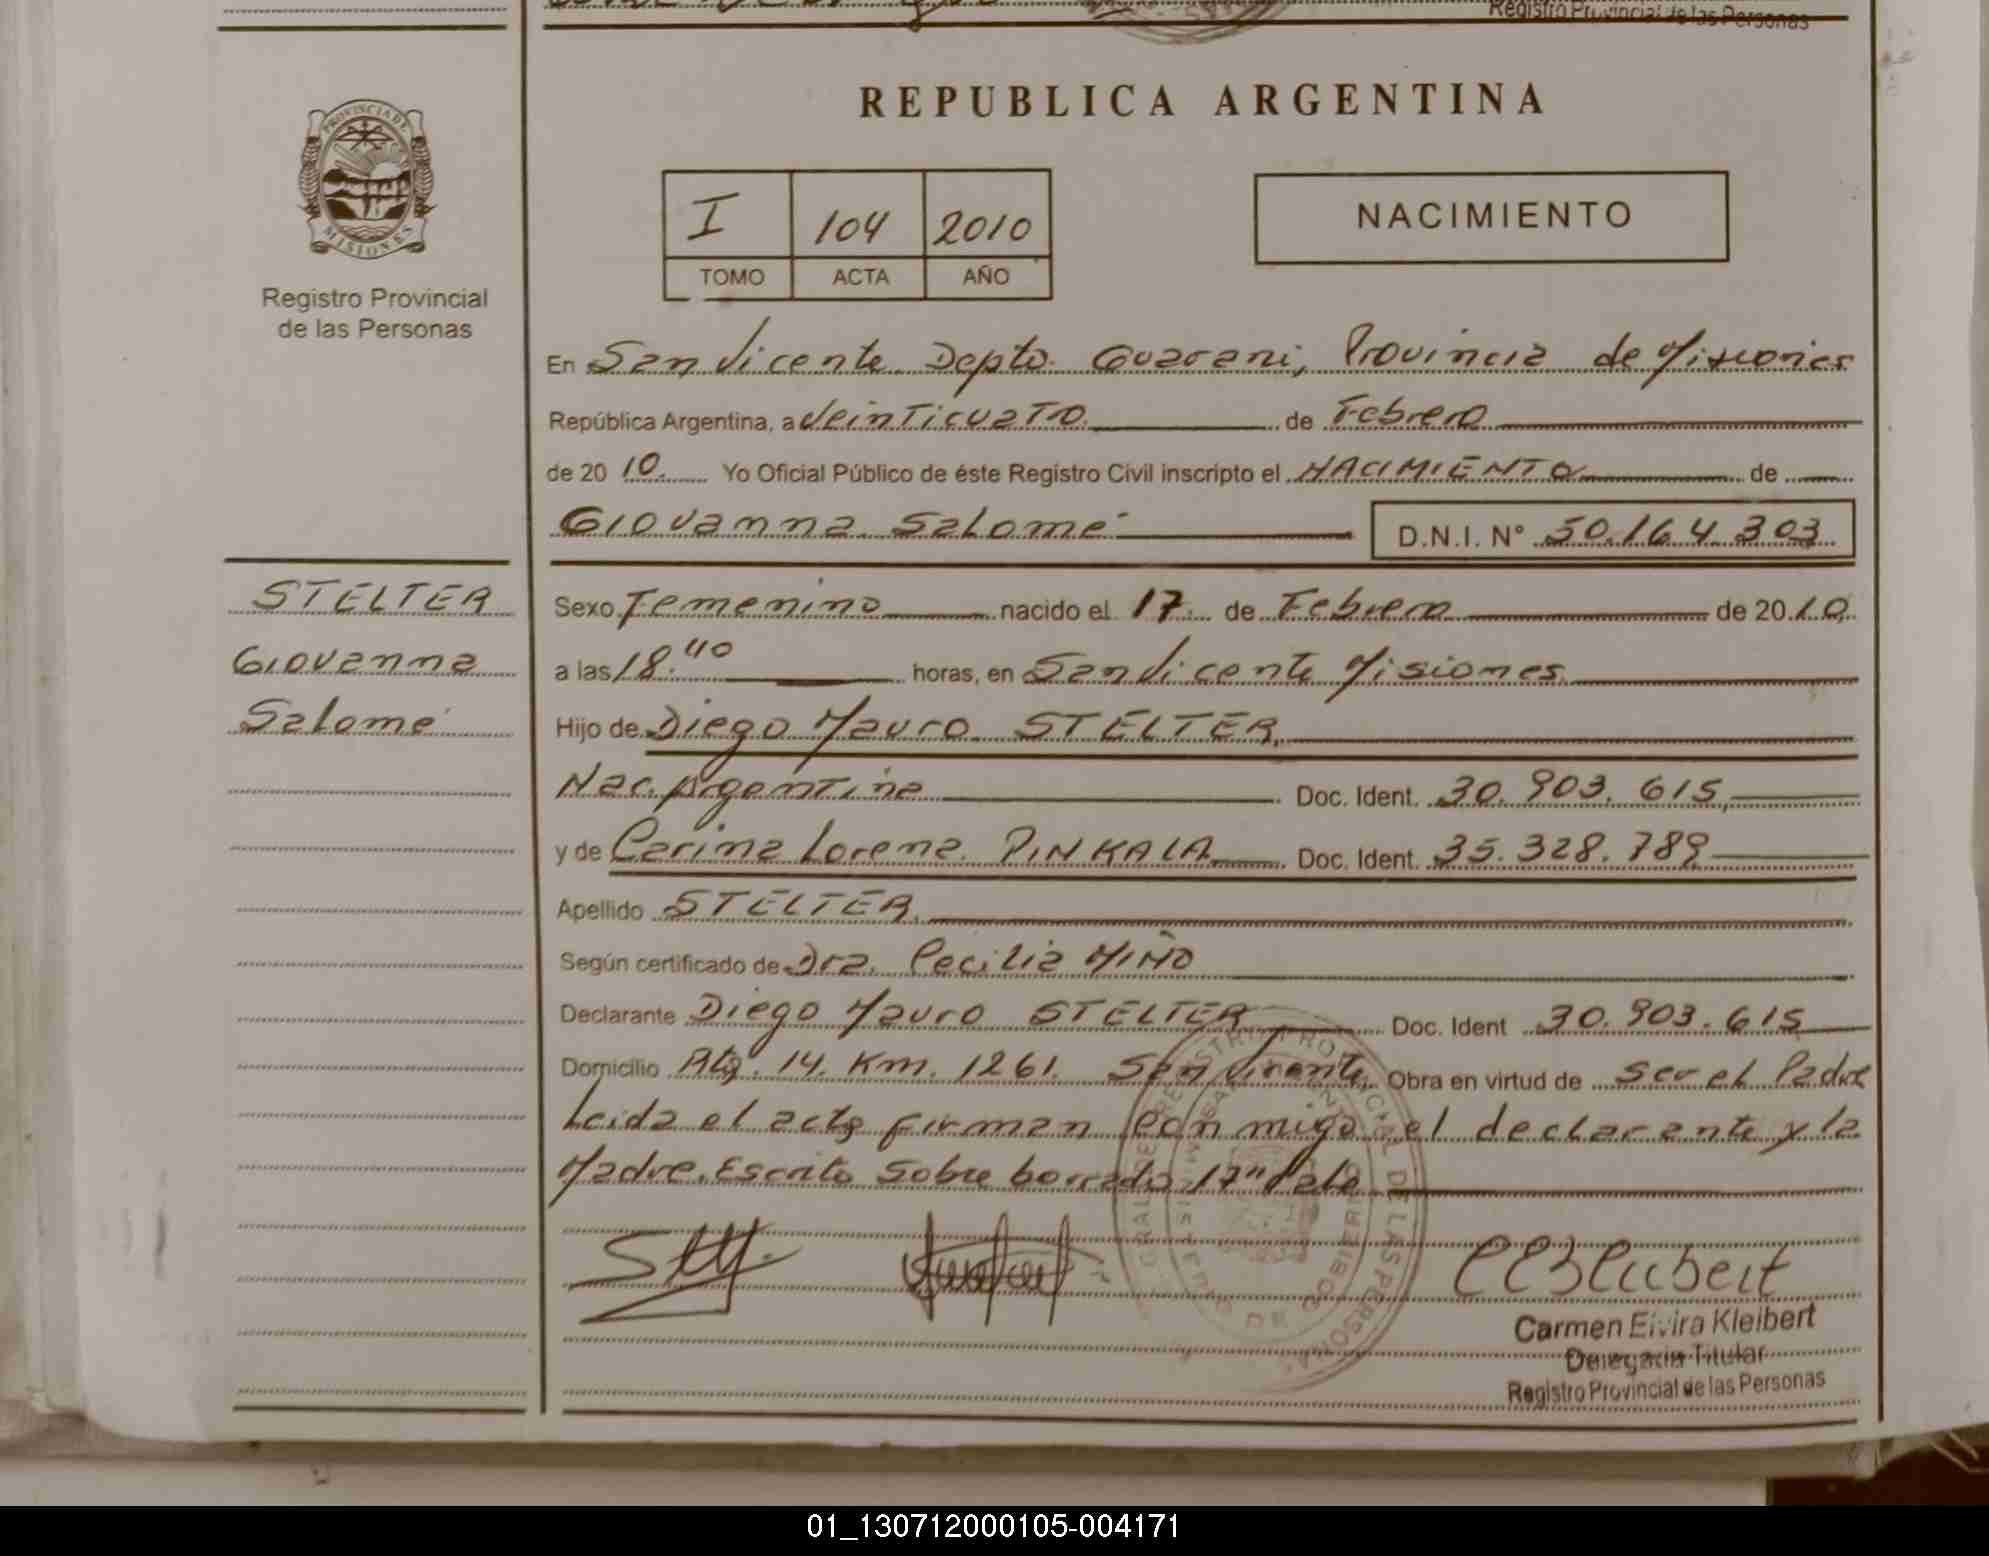 Registro Provincial de las Personas
REPUBLICA ARGENTINA
PROVINCIA DE MISIONES
Registro Provincial
de las Personas
I 104 2010
TOMO ACTA AÑO
NACIMIENTO
En San Vicente Depto. Guarani, Provincia de Misiones
República Argentina, a Veinticuatro de Febrero
de 2010. Yo Oficial Público de éste Registro Civil inscripto el NACIMIENTO de
Giovanna Salomé D.N.I. N° 50.164.303
STELTER
Giovanna
Salomé
Sexo Femenino nacido el 17 de Febrero de 2010,
a las 18:40 horas, en San Vicente Misiones
Hijo de Diego Mauro STELTER,
Nac. Argentina Doc. Ident. 30.903.615,
y de Carina Lorena PINKALA Doc. Ident. 35.328.789
Apellido STELTER,
Según certificado de Dra. Cecilia MIÑO
Declarante Diego Mauro STELTER Doc. Ident 30.903.615
Domicilio Rta. 14. Km. 1261. San Vicente Obra en virtud de ser el Padre
Leida el acta firman conmigo el declarante y la
Madre. Escrito sobre borrado "17" Vale
Carmen Elvira Kleibert
Delegada Titular
Registro Provincial de las Personas
01_130712000105-004171